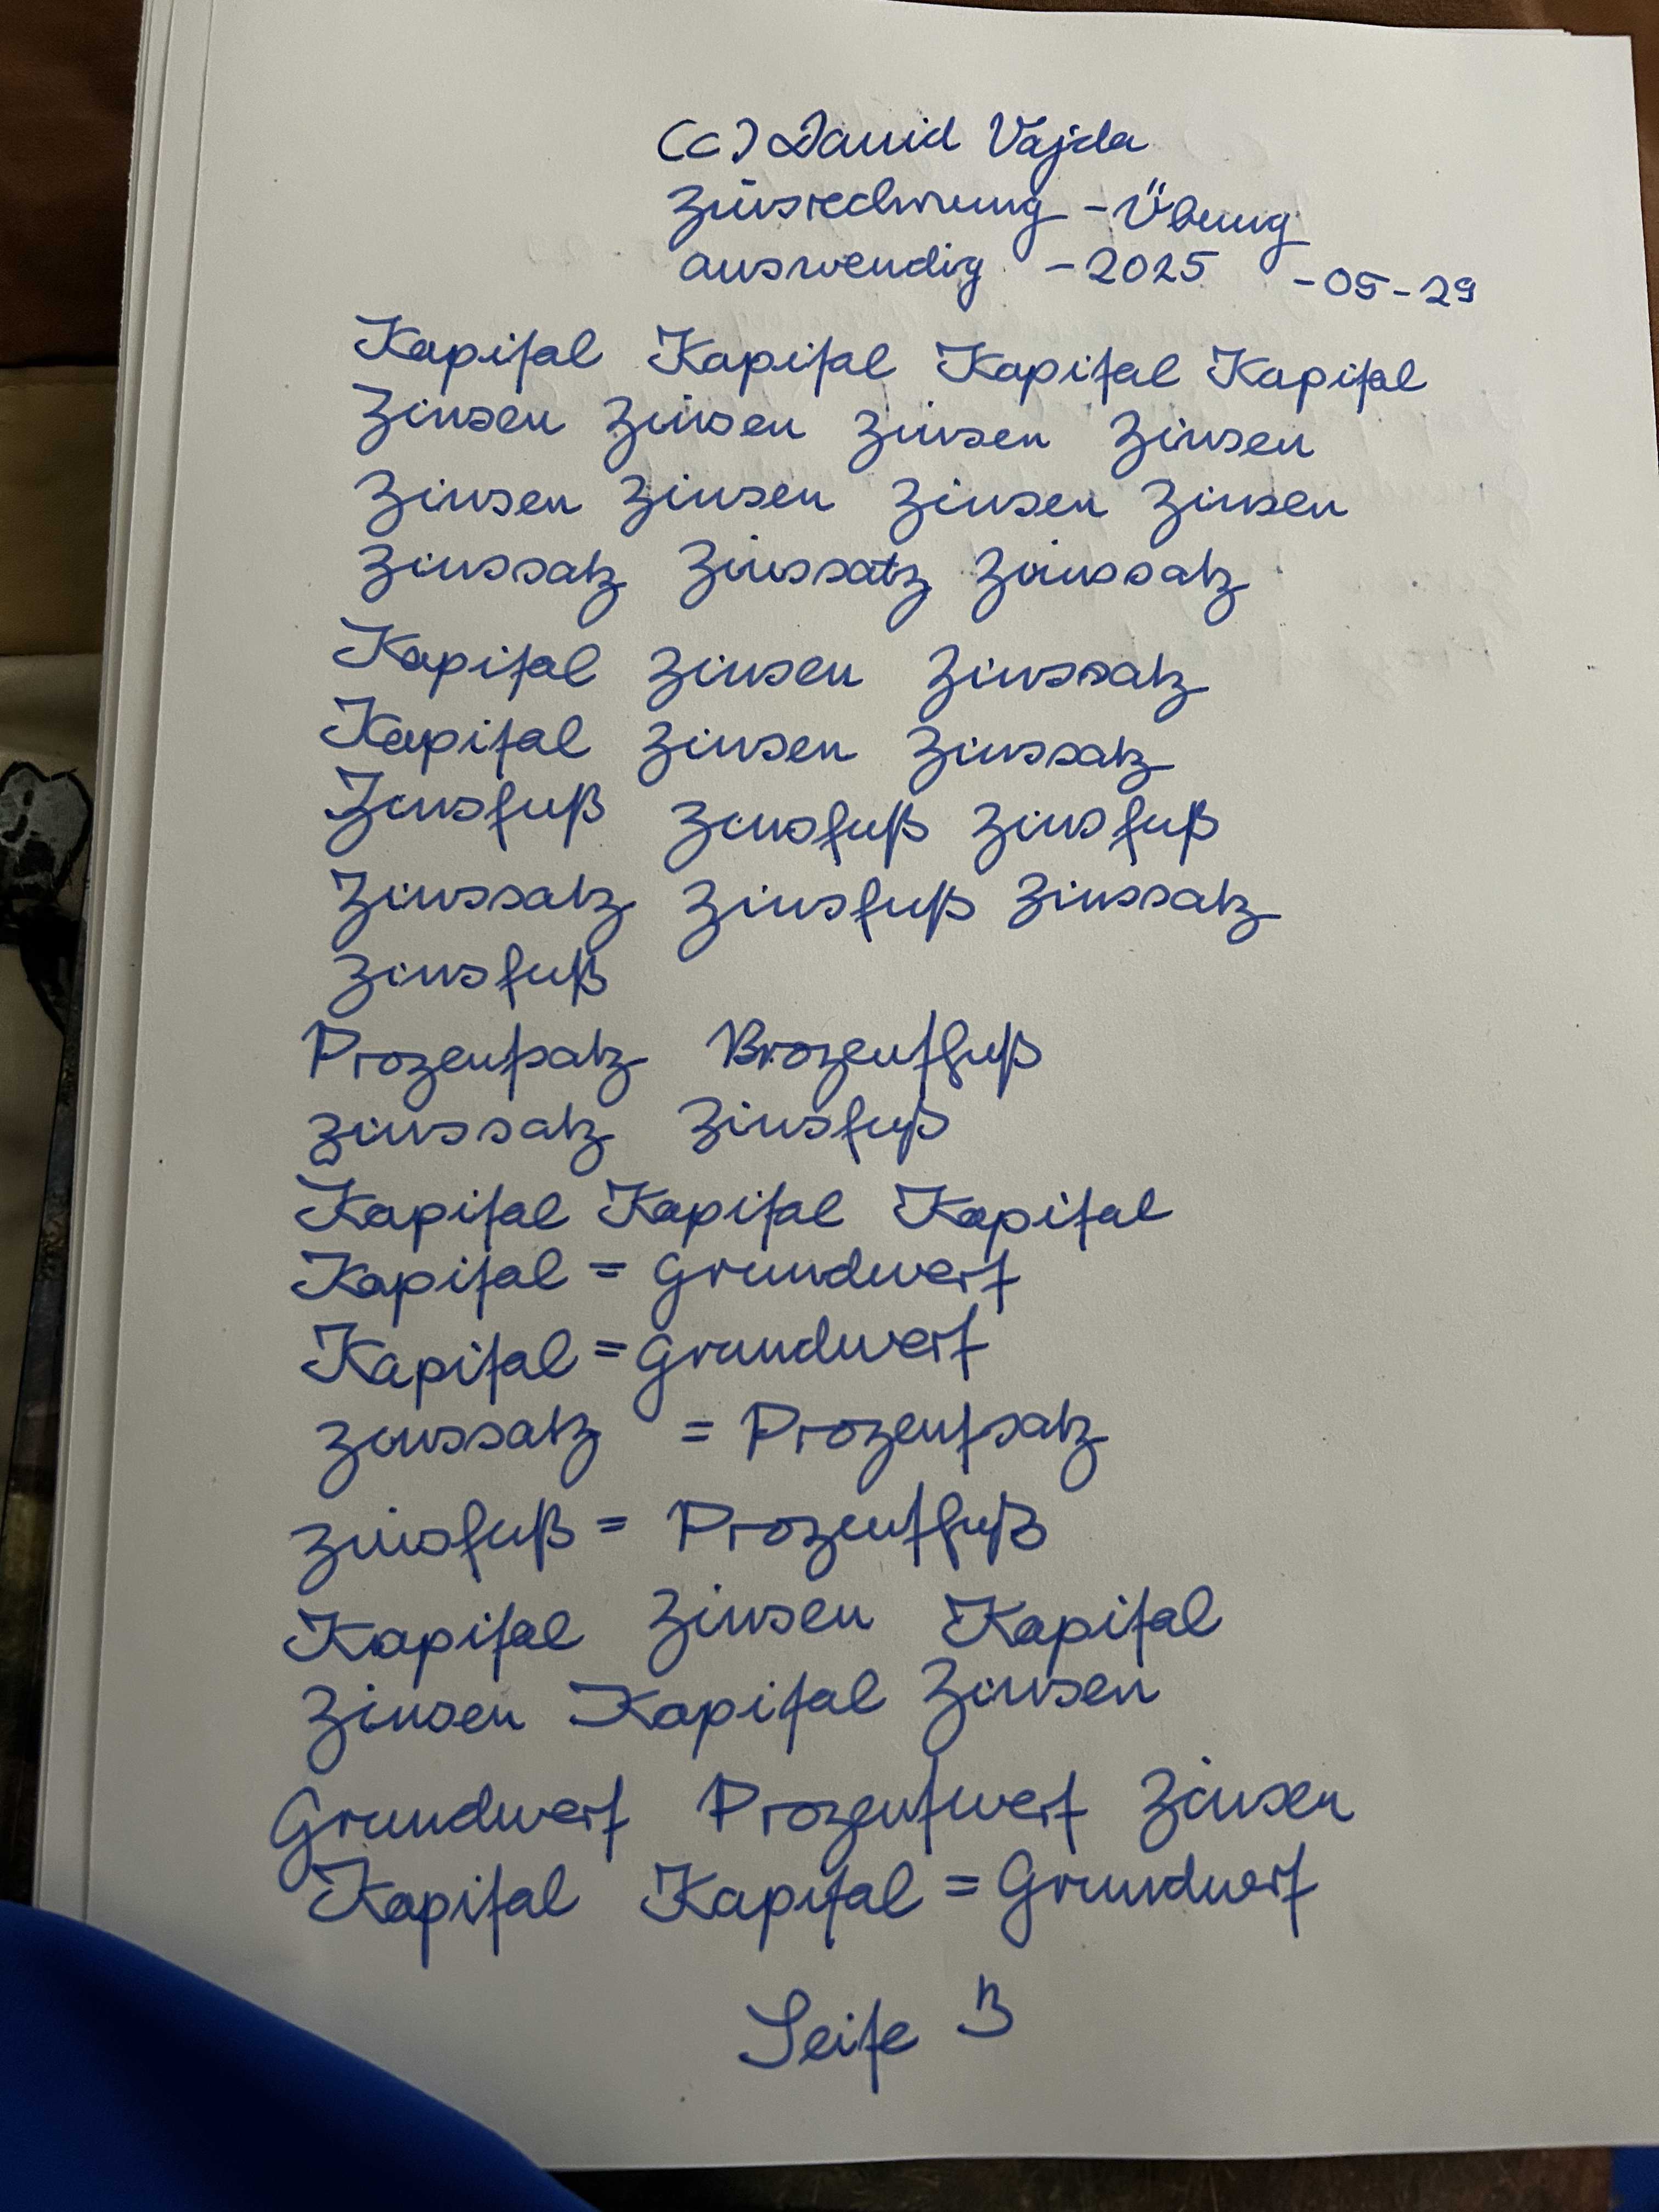 (c) David Vajda
Zinsrechnung - Übung
auswendig - 2025 - 05 - 29
Kapital Kapital Kapital Kapital
Zinsen Zinsen Zinsen Zinsen
Zinsen Zinsen Zinsen Zinsen
Zinssatz Zinssatz Zinssatz
Kapital Zinsen Zinssatz
Kapital Zinsen Zinssatz
Zinsfuß Zinsfuß Zinsfuß
Zinssatz Zinsfuß Zinssatz
Zinsfuß
Prozentsatz Prozentfuß
Zinssatz Zinsfuß
Kapital Kapital Kapital
Kapital = Grundwert
Kapital = Grundwert
Zinssatz = Prozentsatz
Zinsfuß = Prozentfuß
Kapital Zinsen Kapital
Zinsen Kapital Zinsen
Grundwert Prozentwert Zinsen
Kapital Kapital = Grundwert
Seite 3